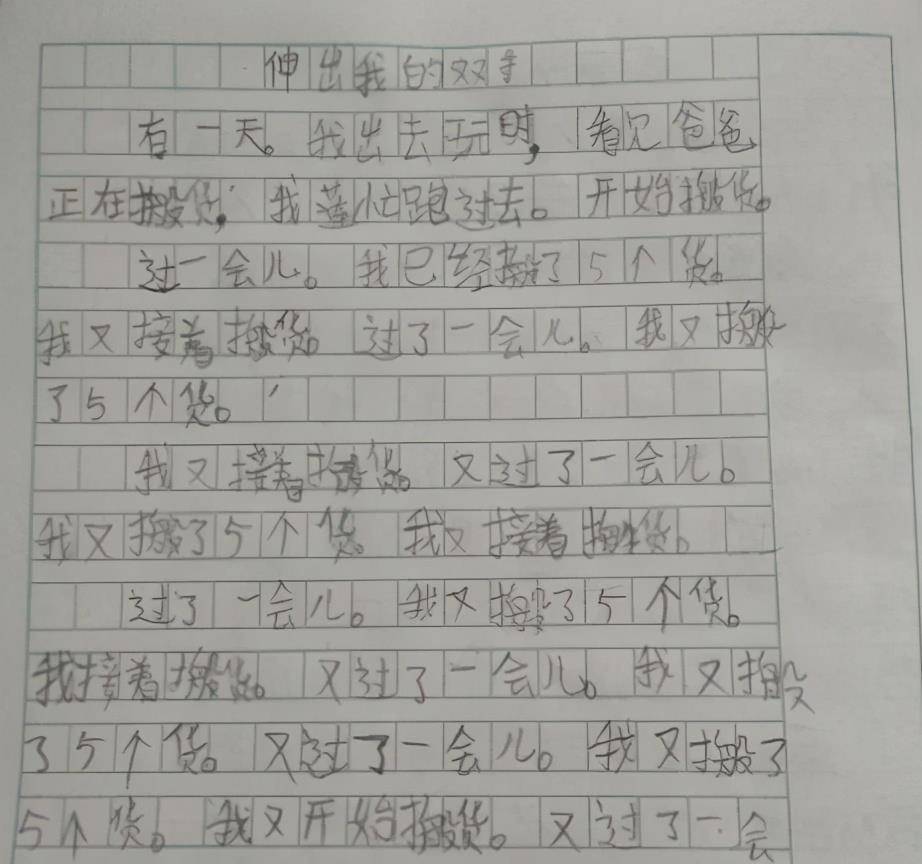 伸出我的双手
有一天。我出去玩时,看见爸爸
正在搬货,我连忙跑过去。开始搬货。
过一会儿。我已经搬了5个货。
我又接着搬货。过了一会儿。我又搬
了5个货。
我又接着搬货。又过了一会儿。
我又搬了5个货。我又接着搬货。
过了一会儿。我又搬了5个货。
我接着搬货。又过了一会儿。我又搬
了5个货。又过了一会儿。我又搬了
5个货。我又开始搬货。又过了一会